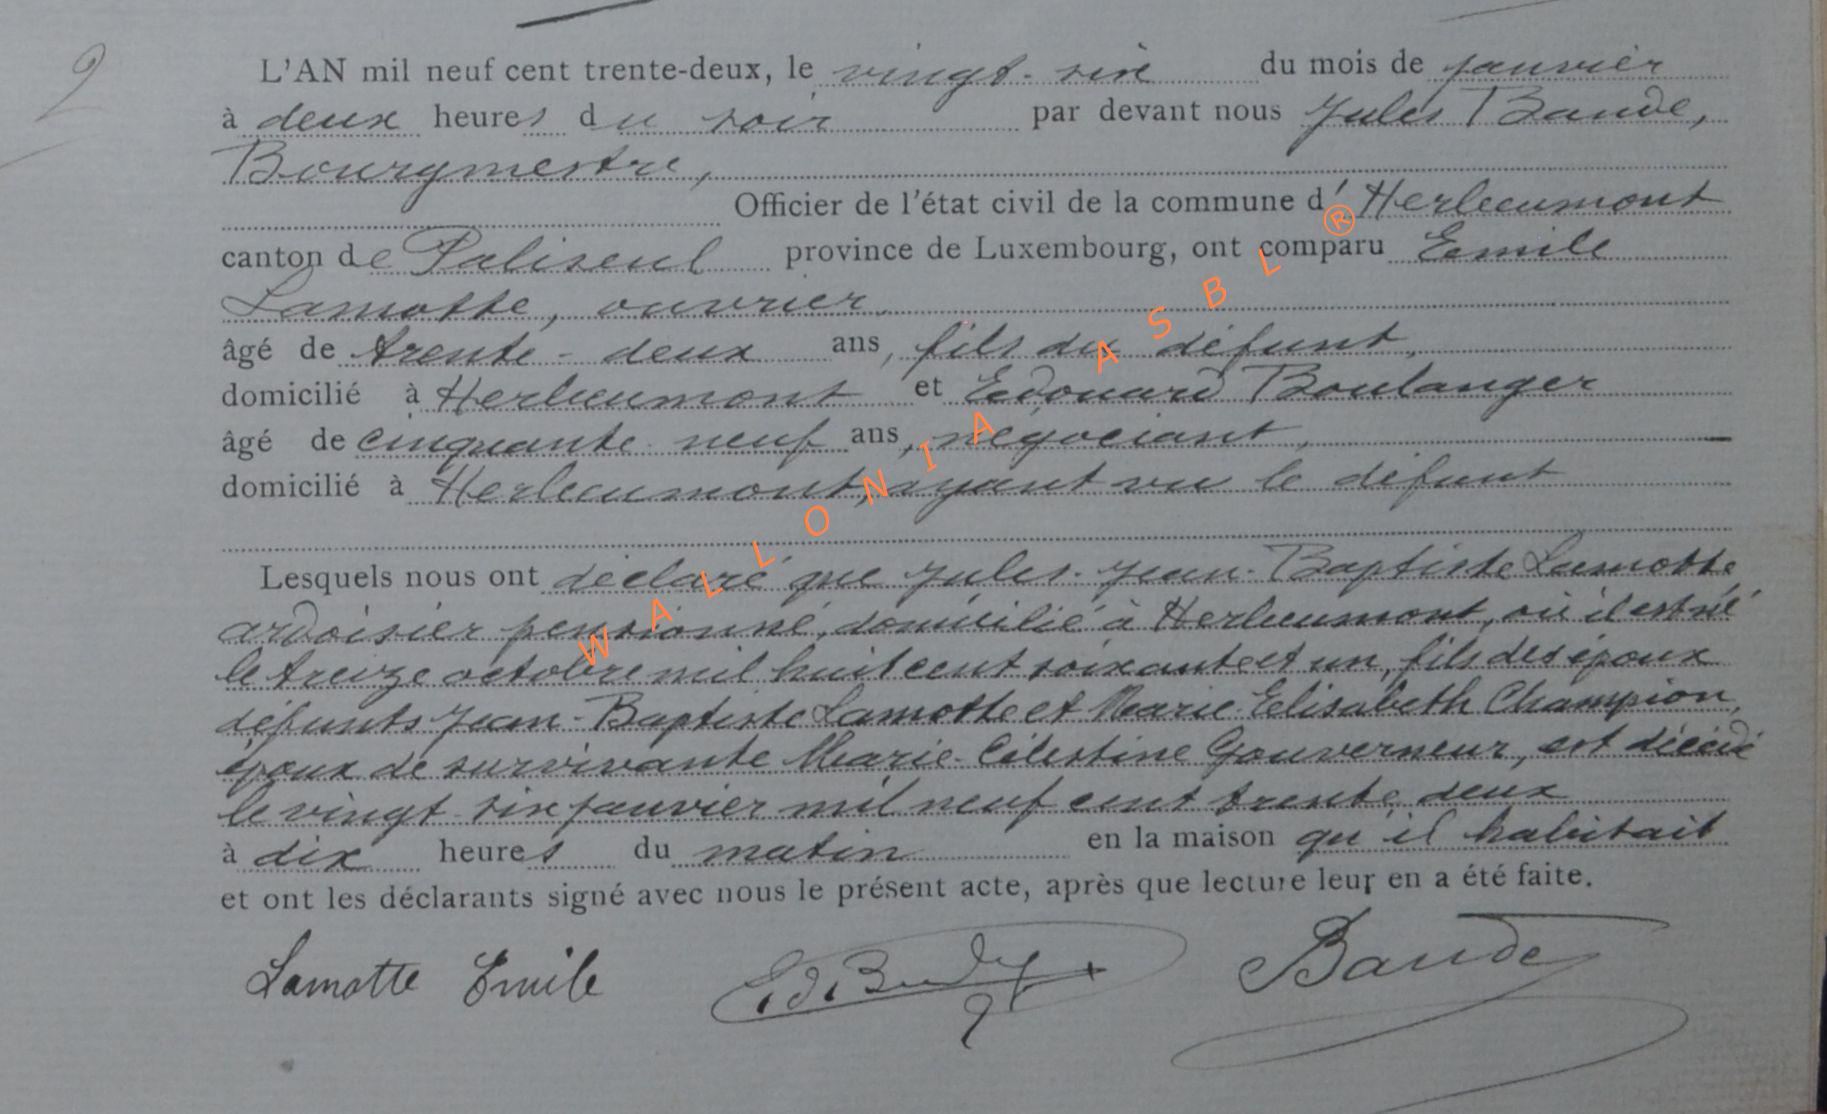 2
L'AN mil neuf cent trente-deux, le vingt-six du mois de janvier
à deux heures du soir par devant nous Jules Baude,
Bourgmestre,
Officier de l'état civil de la commune d'Herbeumont
canton de Paliseul province de Luxembourg, ont comparu Emile
Lamotte, ouvrier,
âgé de trente-deux ans, fils du défunt,
domicilié à Herbeumont et Edouard Boulanger
âgé de cinquante neuf ans, négociant,
domicilié à Herbeumont, ayant vu le défunt
Lesquels nous ont déclaré que Jules-Jean-Baptiste Lamotte
ardoisier pensionné, domicilié à Herbeumont, où il est né
le treize octobre mil huit cent soixante et un, fils des époux
défunts Jean-Baptiste Lamotte et Marie-Elisabeth Champion,
époux de survivante Marie-Célestine Gouverneur, est décédé
le vingt-six janvier mil neuf cent trente deux
à dix heures du matin en la maison qu'il habitait
et ont les déclarants signé avec nous le présent acte, après que lecture leur en a été faite.
Lamotte Emile Baude
WALLONIA ASBL ®